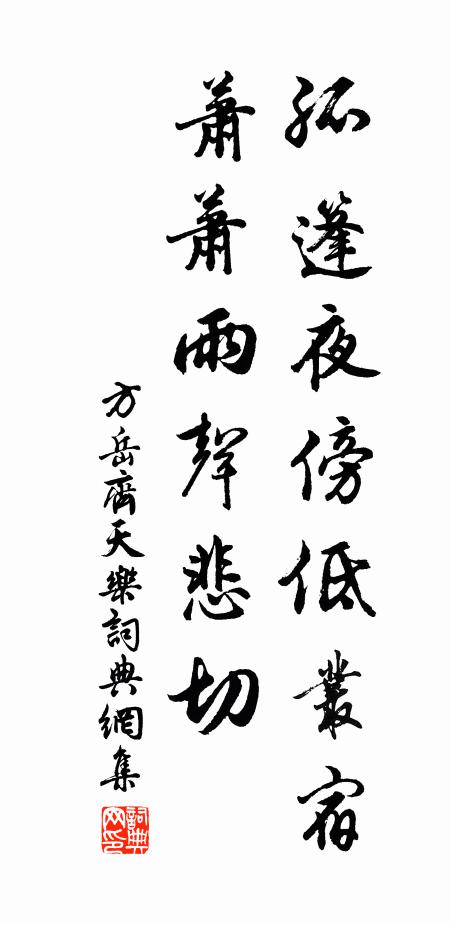 孤蓬夜傍低叢宿
蕭蕭雨聲悲切
方岳齊天樂詞典網集
詞典网印